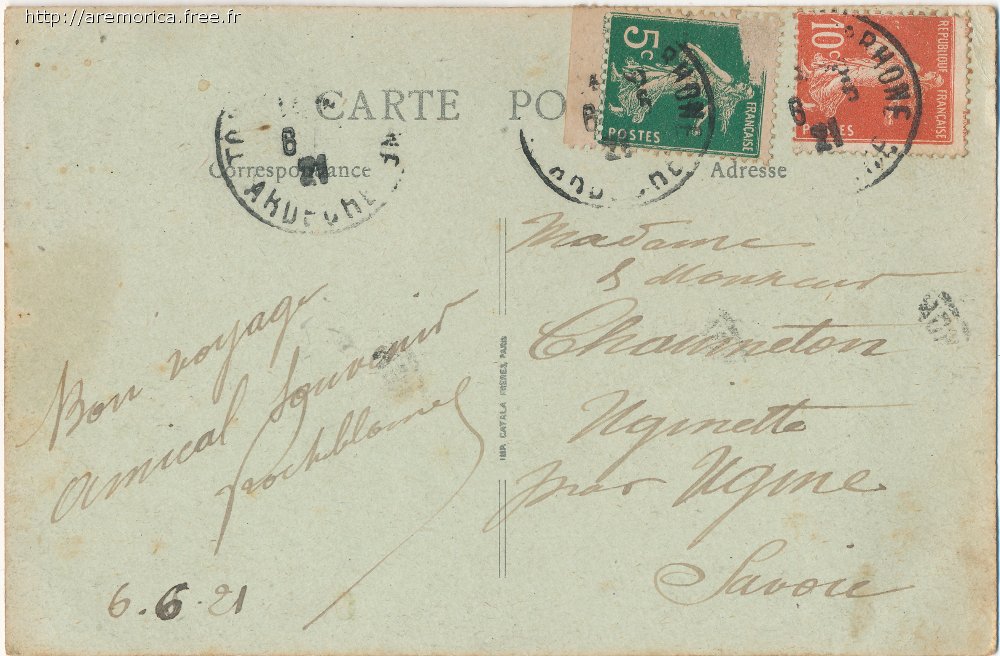 http://aremorica.free.fr
CARTE PO
Correspondance
Adresse
5c
POSTES
FRANÇAISE
10c
POSTES
REPUBLIQUE FRANÇAISE
RHONE
6
21
ARDECHE
RHONE
6
21
Bon voyage
amical souvenir
6.6.21
IMP. CATALA FRÈRES, PARIS
Madame
& Monsieur
Chaumeton
Uginette
par Ugine
Savoie